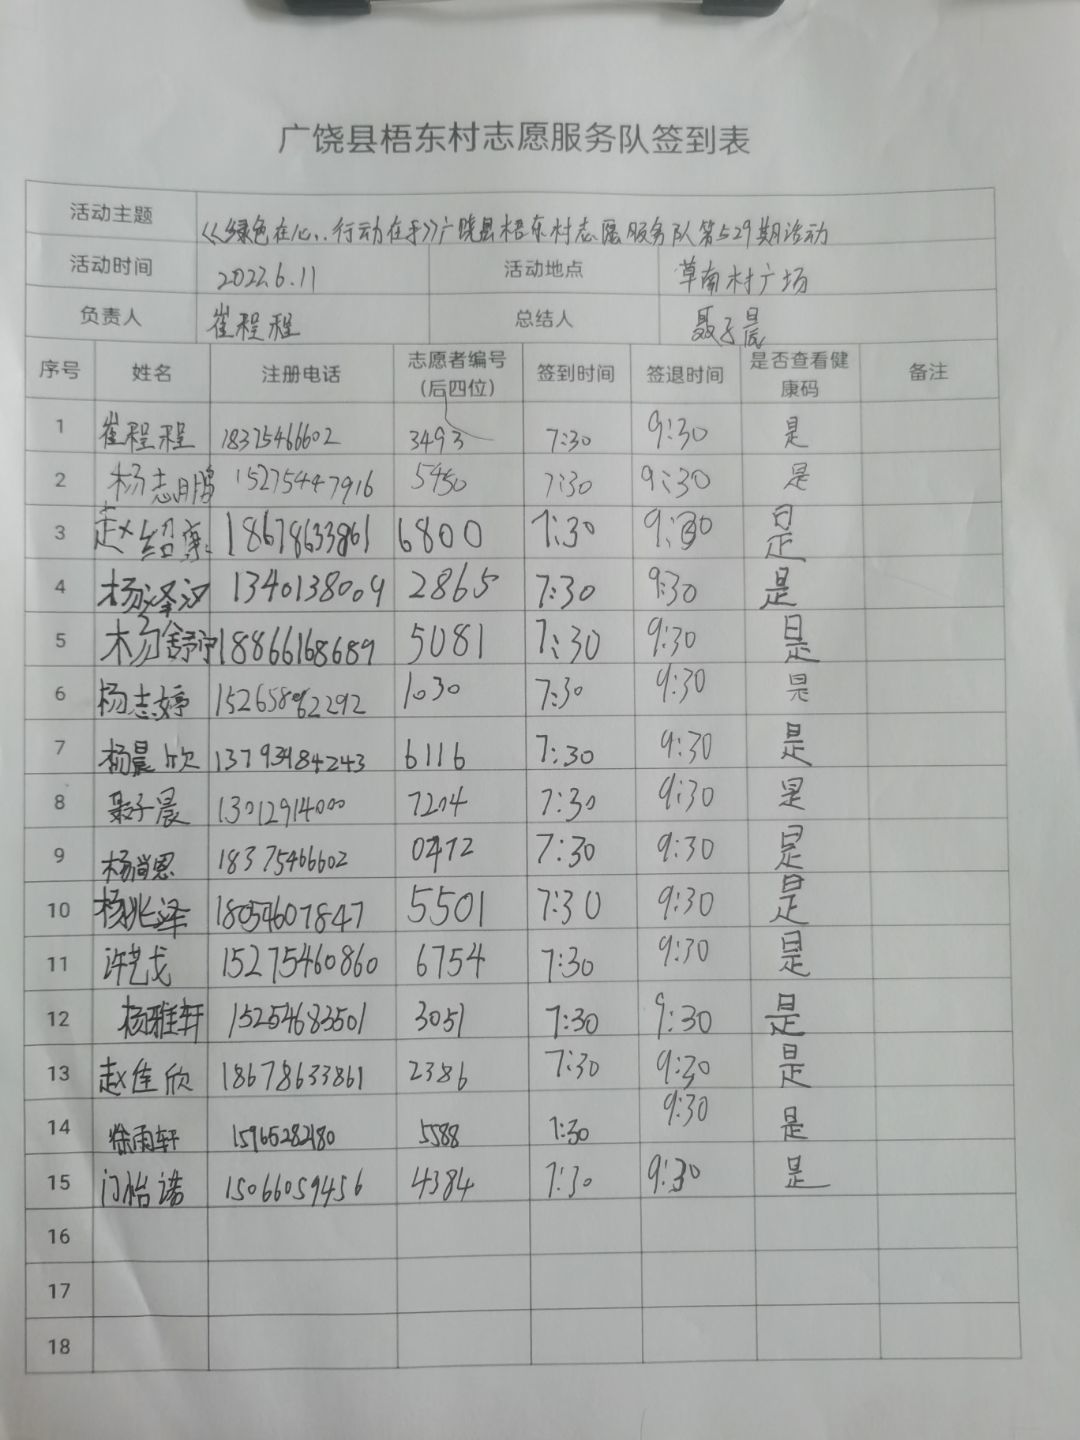 广饶县梧东村志愿服务队签到表
活动主题 《绿色在心,行动在手》广饶县梧东村志愿服务队第529期活动
活动时间 2022.6.11 活动地点 草南村广场
负责人 崔程程 总结人 聂子晨
序号 姓名 注册电话 志愿者编号(后四位) 签到时间 签退时间 是否查看健康码 备注
1 崔程程 18375466602 3493 7:30 9:30 是
2 杨志鹏 15275447916 5450 7:30 9:30 是
3 赵绍 18678633861 6800 7:30 9:30 是
4 杨泽汐 1340138009 2865 7:30 9:30 是
5 杨舒 18866168689 5081 7:30 9:30 是
6 杨志婷 1030 7:30 9:30 是
7 杨晨欣 13793984243 6116 7:30 9:30 是
8 聂子晨 13012914000 7204 7:30 9:30 是
9 杨尚恩 18375466602 0472 7:30 9:30 是
10 杨兆泽 18054607847 5501 7:30 9:30 是
11 许艺戈 15275460860 6754 7:30 9:30 是
12 杨雅轩 15254683501 3051 7:30 9:30 是
13 赵佳欣 18678633861 2386 7:30 9:30 是
14 徐雨轩 15965282180 5588 7:30 9:30 是
15 门怡诺 15066059456 4384 7:30 9:30 是
16
17
18